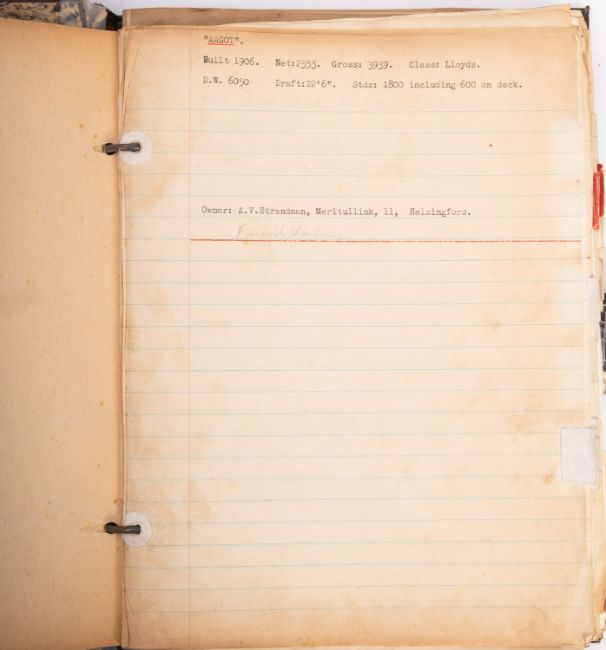 "AAGOT".
Built 1906. Net:2353. Gross: 3939. Class: Lloyds.
D.W. 6050 Draft:22'6". Stds: 1800 including 600 on deck.
Owner: A.V.Strandman, Meritullink, 11, Helsingfors.